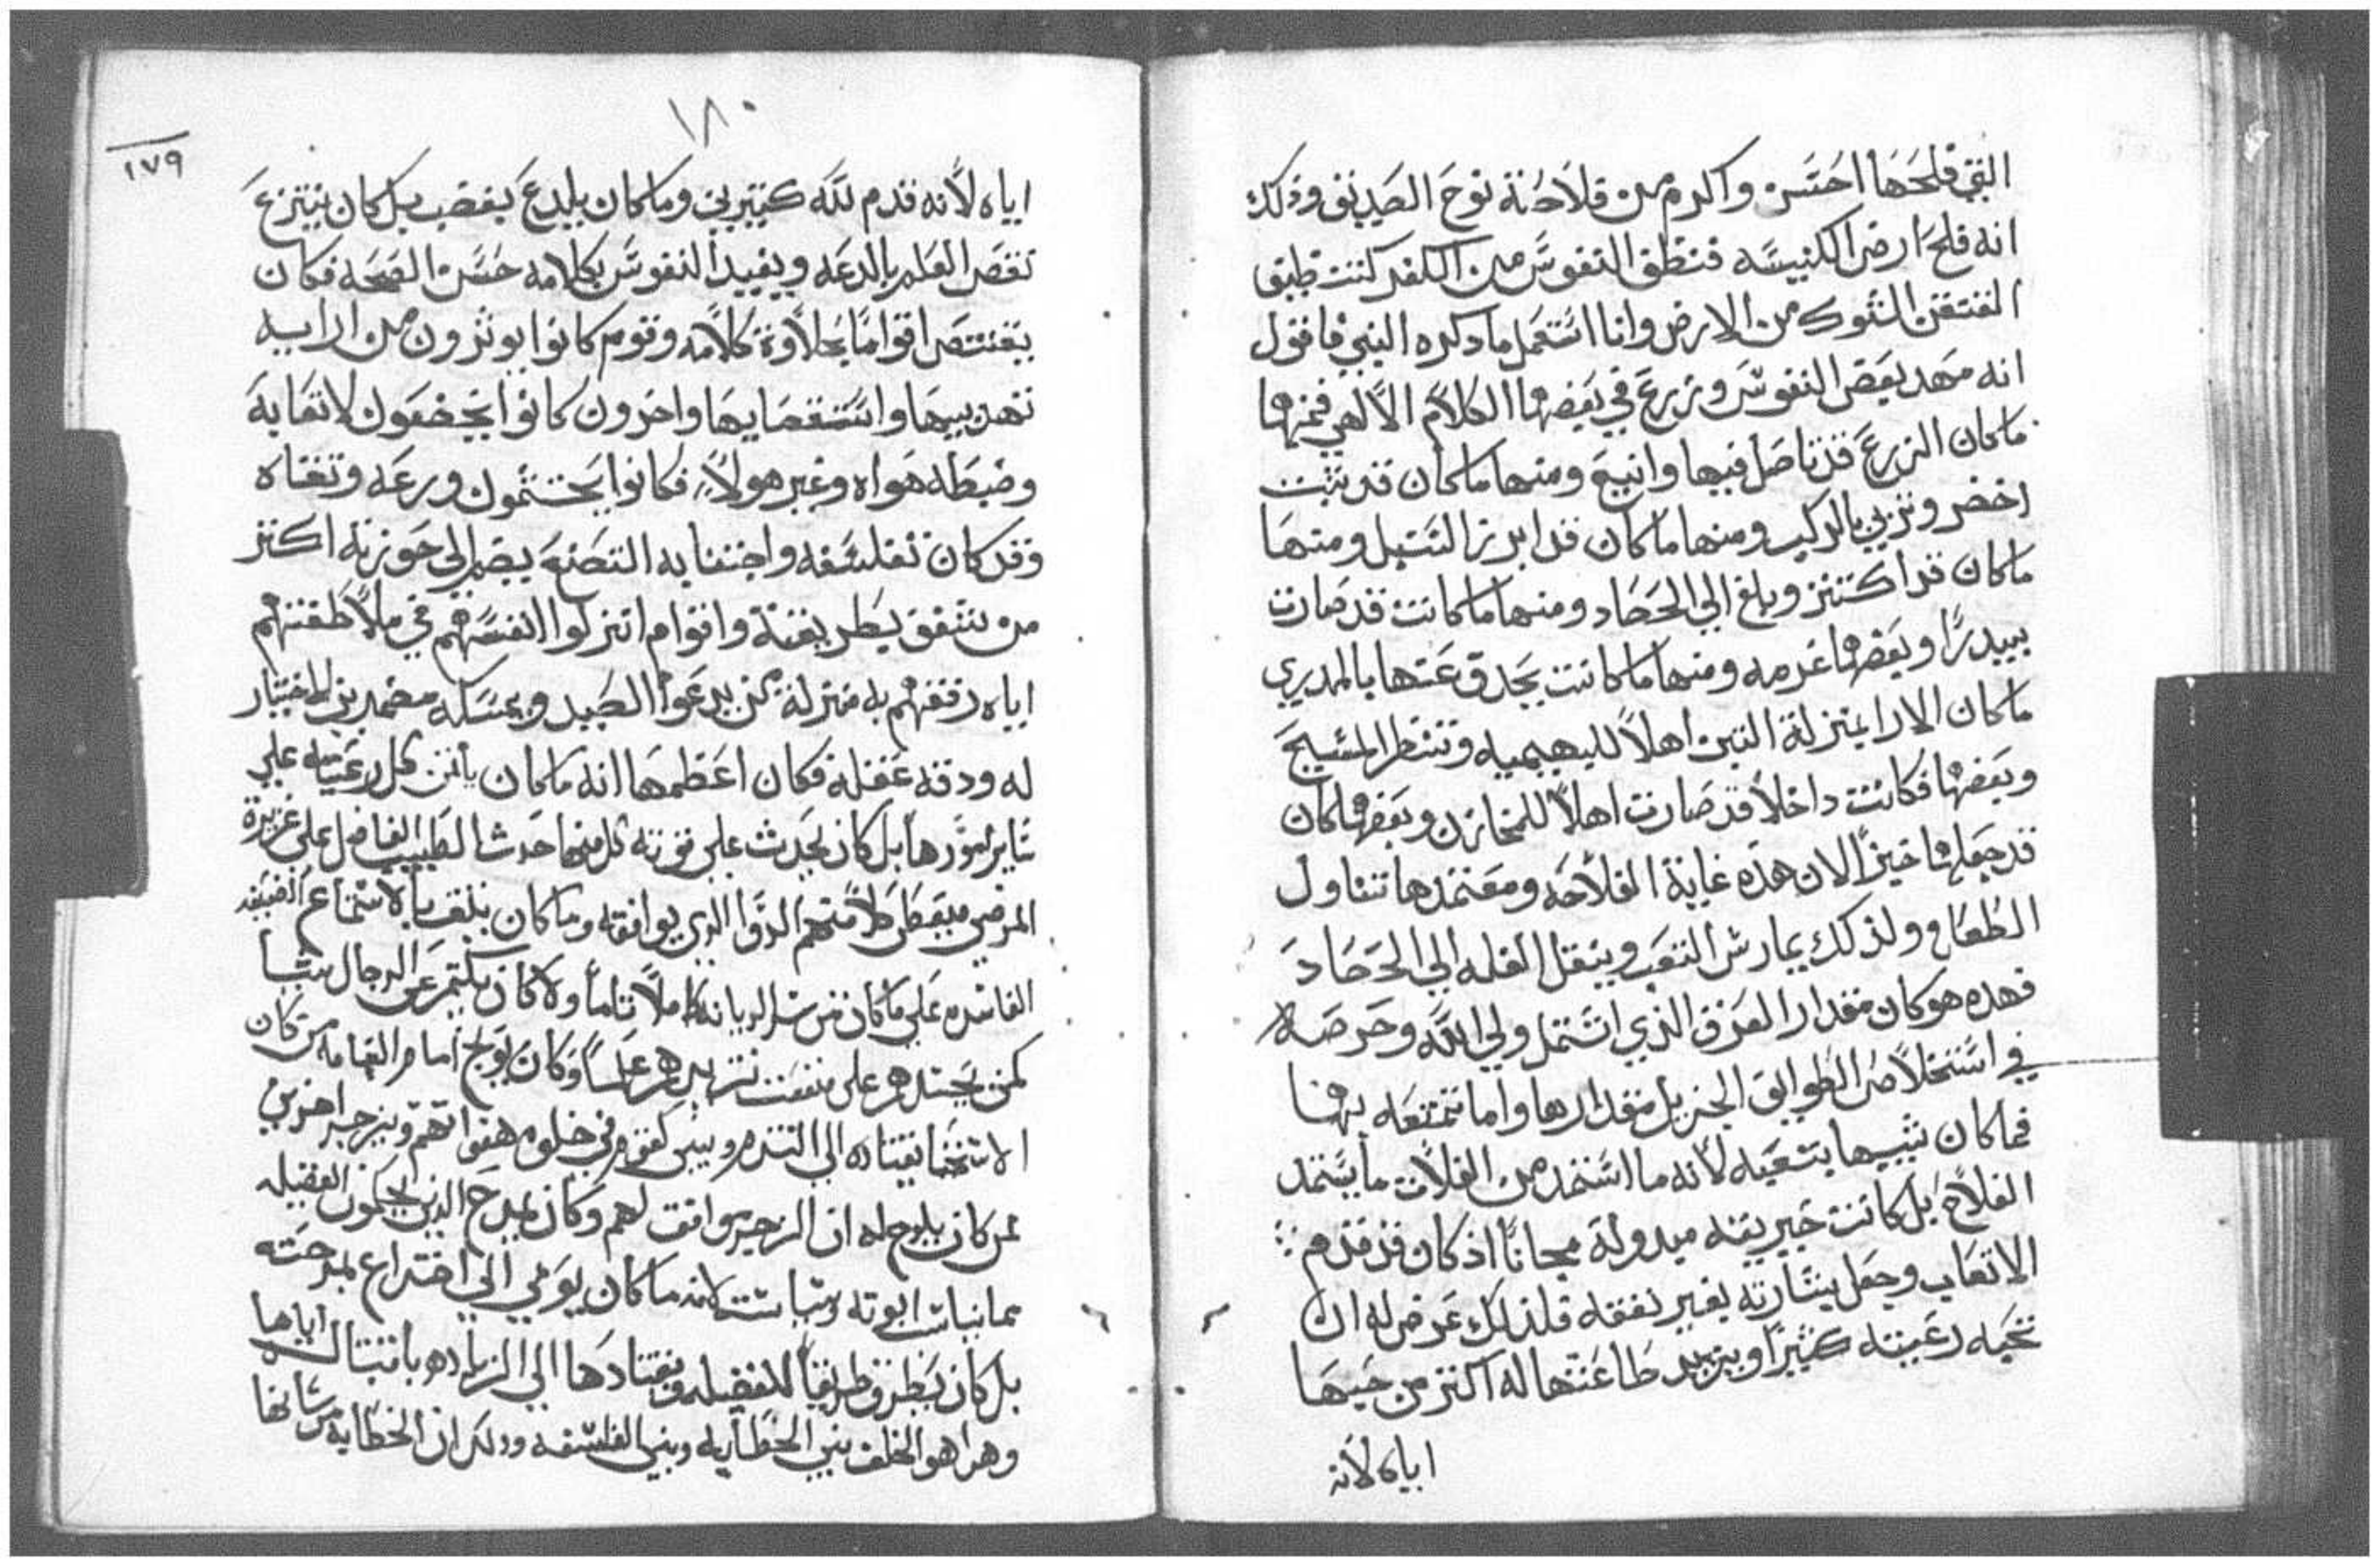 التي فلحها احسن واكرم من فلاحة نوح الصديق وذلك
انه فلح ارض الكنيسه فنظف النفوس من الكفر كنت طبق
المنتقي الشوك من الارض وانا استعمل ما دكره النبي فاقول
انه مهد بعض النفوس وزرع في بعضها الكلام الالاهي فمنها
ماكان الزرع قد تاصل فيها وانبع ومنها ماكان قد نبت
اخضر وتزبي بالركب ومنها ماكان قد ابرز السنبل ومنها
ماكان قد اكتنز وبلغ الي الحصاد ومنها ماكانت قد صارت
بيدرًا وبعضها عرمه ومنها ماكانت يحدق عنها بالمديري
ماكان الارا بمنزلة التبن اهلاً للبهيميه وتنتظر المسيح
وبعضها فكانت داخلاً قد صارت اهلاً للمخازن وبعضها كان
قد جعلها خبزًا لان هذه غاية الفلاحه ومعتمدها تناول
الطعام ولذلك يمارس التعب وينقل الغله الي الحصاد
فهده هو كان مقدار العرق الذي اشتمل ولي الله وحرصه
في استخلاص الطوايق الجزيل مقدارها واما تمتعه بها
فما كان شبيها بتعبه لانه ما استمد من الغلات ما يستمد
الفلاح بل كانت خيريته مبدولة مجانًا اذ كان قد قدم
الاتعاب وجعل بشارته بغير نفقه فلذلك عرض له ان
تحبه رعيته كثيرًا ويزيد طاعتها له اكثر من حبها
اياه لانه
١٨٠
١٧٩
اياه لانه قدم لله كنيرين وماكان بلدع يغضب بل كان ينتزع
نقص العلم بالدعه ويفيد النفوس بكلامه حسن الصحه فكان
يقتنص اقوامًا بحلاوة كلامه وقوم كانوا يوثرون من ارايه
تهديبها واستقصايها واخرون كانوا يخضعون لاتعابه
وضبطه هواه وغير هولاء فكانوا يحتشمون ورعه وتقاه
وقد كان تفلسفه واجتنابه التصنع يضم الي حوزته اكثر
من يتفق بطريقته واقوام انزلوا انفسهم في ملاطفتهم
اياه رفقهم به منزلة من يدعوا الصيد ويمسكه مضمدين لاختبار
له ودقة عقله فكان اعظمها انه ماكان ياتمن كل رعيته علي
ساير امورها بل كان يحدث علي قوته كل منها حدث الطبيب الفاضل علي غزيرة
المرضي فيعطي كلاً منهم الدوا الذي يوافقه وماكان يلقف بالاستماع الضعيفه
الفاسده علي ماكان من شر الديانه كاملاً تاماً ولا كان يكتم عن الرجال شيا
كمن يحسدهم علي منفعت تزيدهم علماً وكان يوبخ امام القيامه من كان
الاستحيا يقتاده الي التندم ويبكت قوم في خلوه هفواتهم ويزجر اخرين
ممن كان يلوح له ان الزجر يوافق لهم وكان يمدح الذين يحكمون الفضيله
بمانيات ابوته وشبابت لانه ماكان يومي الي اختراع بمدحته
بل كان يطرق طريقاً للفضيله ويقتادها الي الزياده بامتثاله اياها
وهدا هو الخلف بين الخطابه وبين الفلسفه ودلك ان الخطابه من شانها